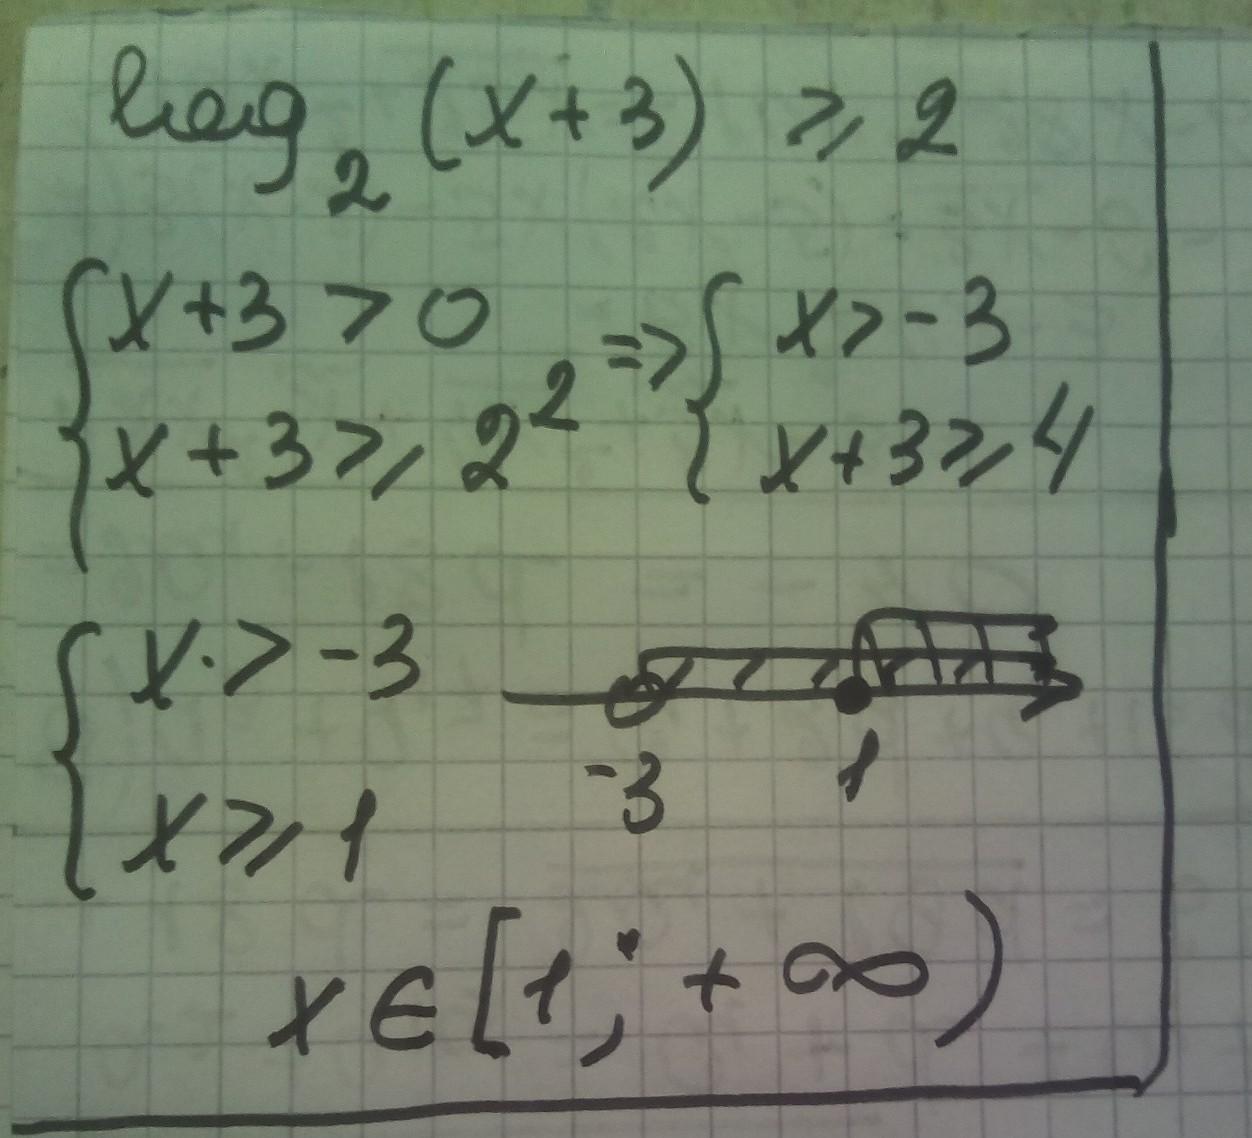 log₂ (x + 3) ⩾ 2
{ x + 3 > 0 => { x > - 3
{ x + 3 ⩾ 2² { x + 3 ⩾ 4
{ x > - 3
{ x ⩾ 1
-3 1
x ∈ [1 ; + ∞)